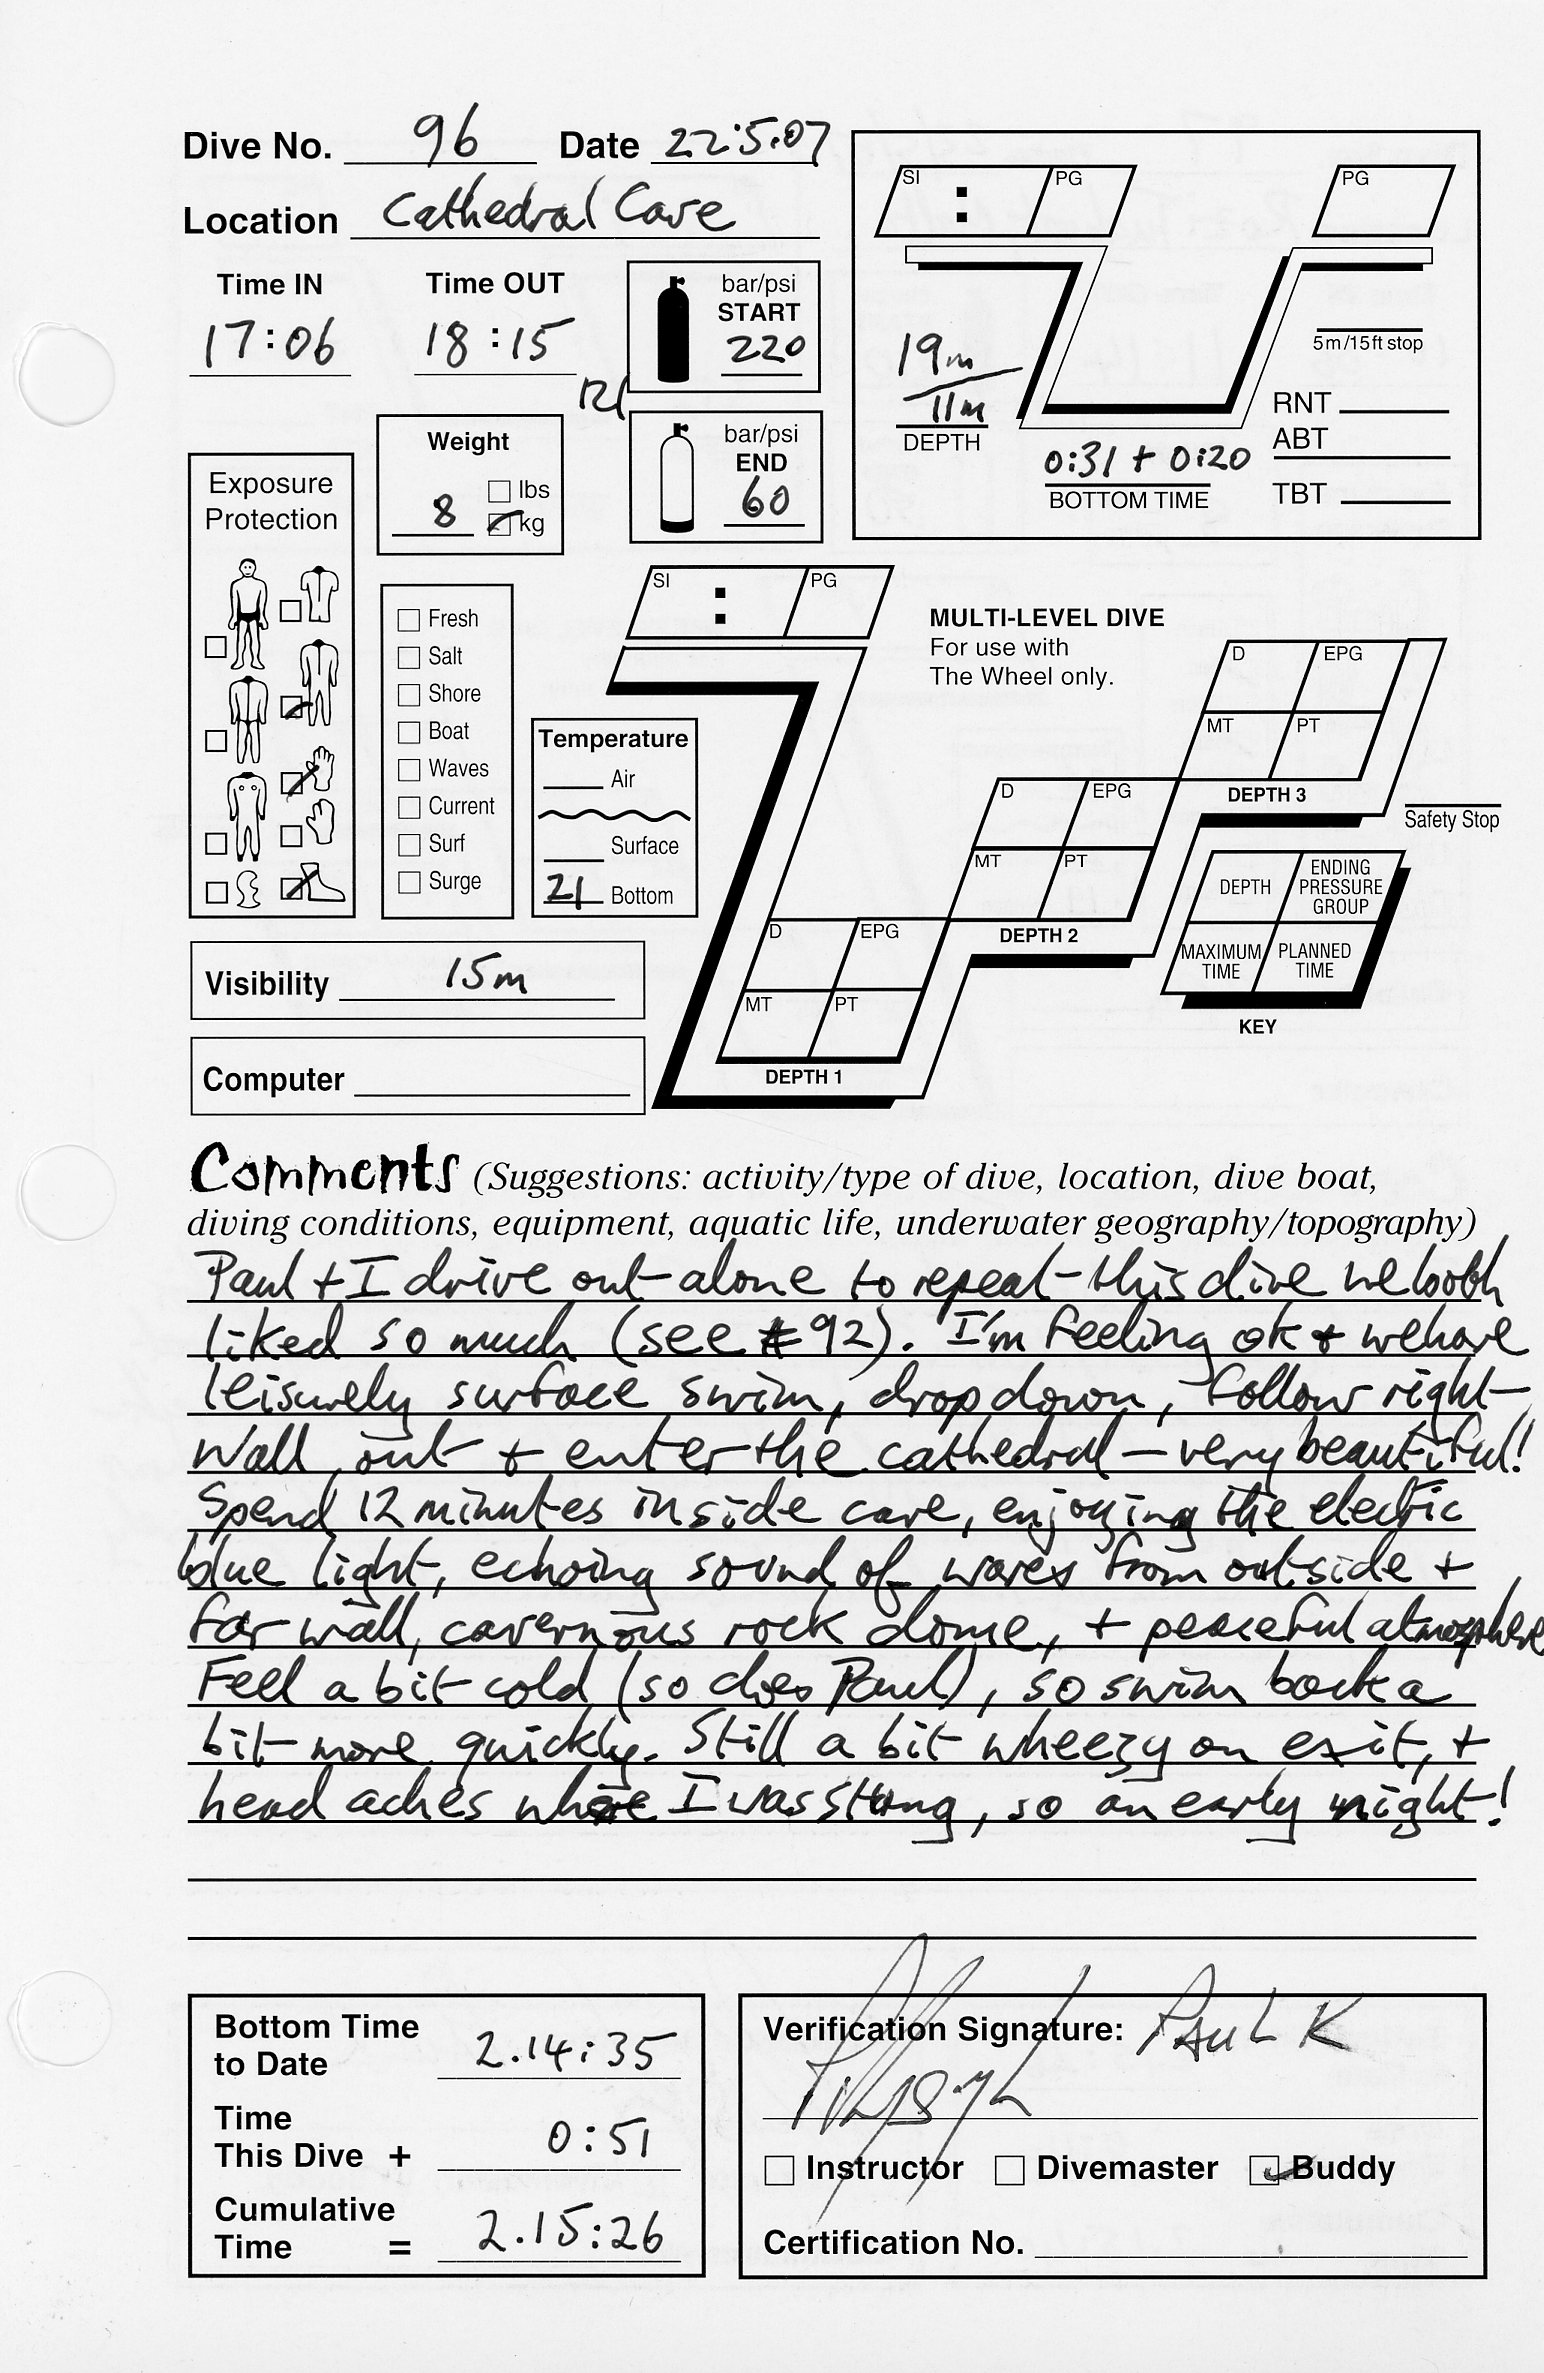 Dive No. 96 Date 22.5.07
Location Cathedral Cave
Time IN Time OUT
17:06 18:15
bar/psi
START
220
12l
bar/psi
END
60
Weight
8
lbs
kg
Exposure
Protection
Fresh
Salt
Shore
Boat
Waves
Current
Surf
Surge
Temperature
Air
Surface
21 Bottom
Visibility 15m
Computer
SI : PG
PG
19m
11m
DEPTH
0:31 + 0:20
BOTTOM TIME
5m/15ft stop
RNT
ABT
TBT
SI : PG
MULTI-LEVEL DIVE
For use with
The Wheel only.
D EPG
MT PT
DEPTH 3
D EPG
MT PT
DEPTH 2
D EPG
MT PT
DEPTH 1
Safety Stop
DEPTH
ENDING
PRESSURE
GROUP
MAXIMUM
TIME
PLANNED
TIME
KEY
Comments (Suggestions: activity/type of dive, location, dive boat,
diving conditions, equipment, aquatic life, underwater geography/topography)
Paul + I drive out alone to repeat this dive we both
liked so much (see #92). I'm feeling ok + we have
leisurely surface swim, drop down, follow right
wall out + enter the cathedral – very beautiful!
Spend 12 minutes inside cave, enjoying the electric
blue light, echoing sound of waves from outside +
far wall, cavernous rock dome, + peaceful atmosphere
Feel a bit cold (so does Paul), so swim back a
bit more quickly. Still a bit wheezy on exit, +
head aches where I was stung, so an early night!
Bottom Time
to Date 2.14:35
Time
This Dive + 0:51
Cumulative
Time = 2.15:26
Verification Signature: PAUL K
Instructor Divemaster Buddy
Certification No.